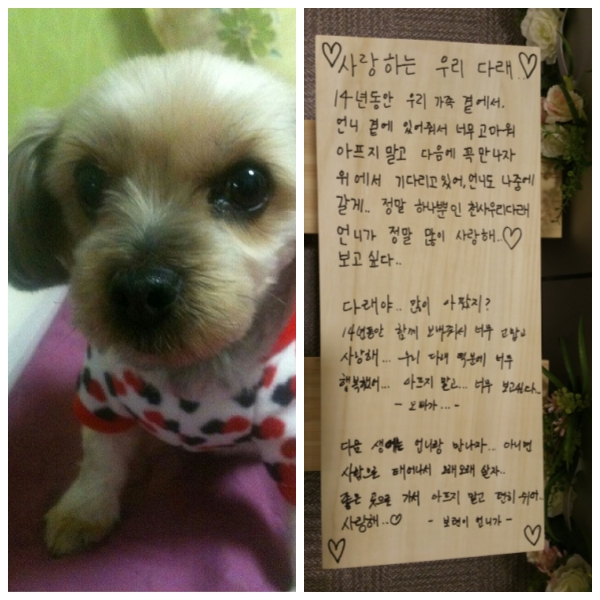 ♡사랑하는 우리 다래..♡
14년동안 우리 가족 곁에서.
언니 곁에 있어줘서 너무 고마워
아프지 말고 다음에 꼭 만나자
위에서 기다리고 있어, 언니도 나중에
갈게.. 정말 하나뿐인 천사우리다래
언니가 정말 많이 사랑해..♡
보고 싶다..
다래야.. 많이 아팠지?
14년동안 함께 보내줘서 너무 고맙고
사랑해... 우리 다래 덕분에 너무
행복했어... 아프지 말고... 너무 보고싶다...
- 오빠가... -
다음 생에는 언니랑 만나자... 아니면
사람으로 태어나서 오래오래 살자..
좋은 곳으로 가서 아프지 말고 편히 쉬어..
사랑해..♡ - 보현이 언니가 -